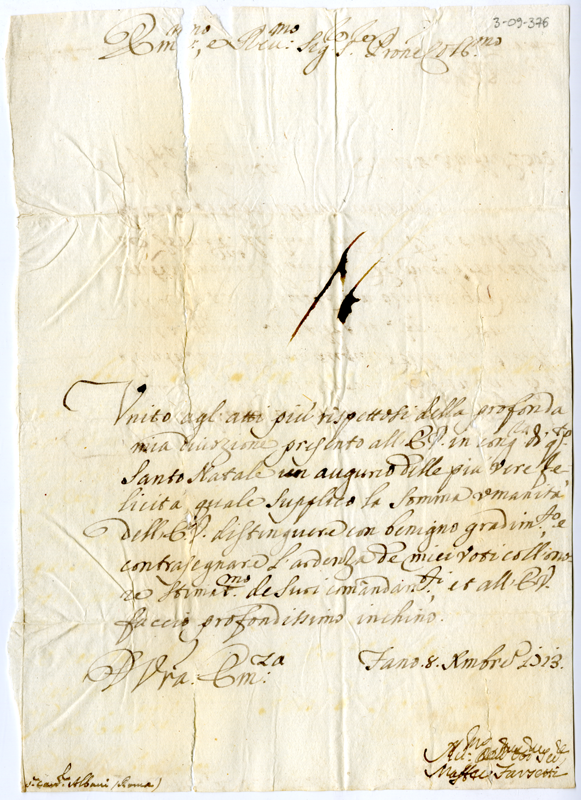 3-09-376
Em.mo, e Rev.mo Sig.r Sig.r Prone Col.mo
Unito agl'atti più rispettosi della profonda
mia divozione presento all'E.V. in cong.ra di q.to
Santo Natale un augurio delle più vere fe-
licità quale supplico la somma umanità
dell'E.V. distinguere con benigno gradim.to, e
contrasegnare l'ardenza de miei voti coll'ono-
re stimat.mo de suoi comandam.ti, et all'E.V.
faccio profondissimo inchino.
D. Vra. Em.za
Fano. 8. Xmbre 1713.
S.r Card.l Albani (Roma)